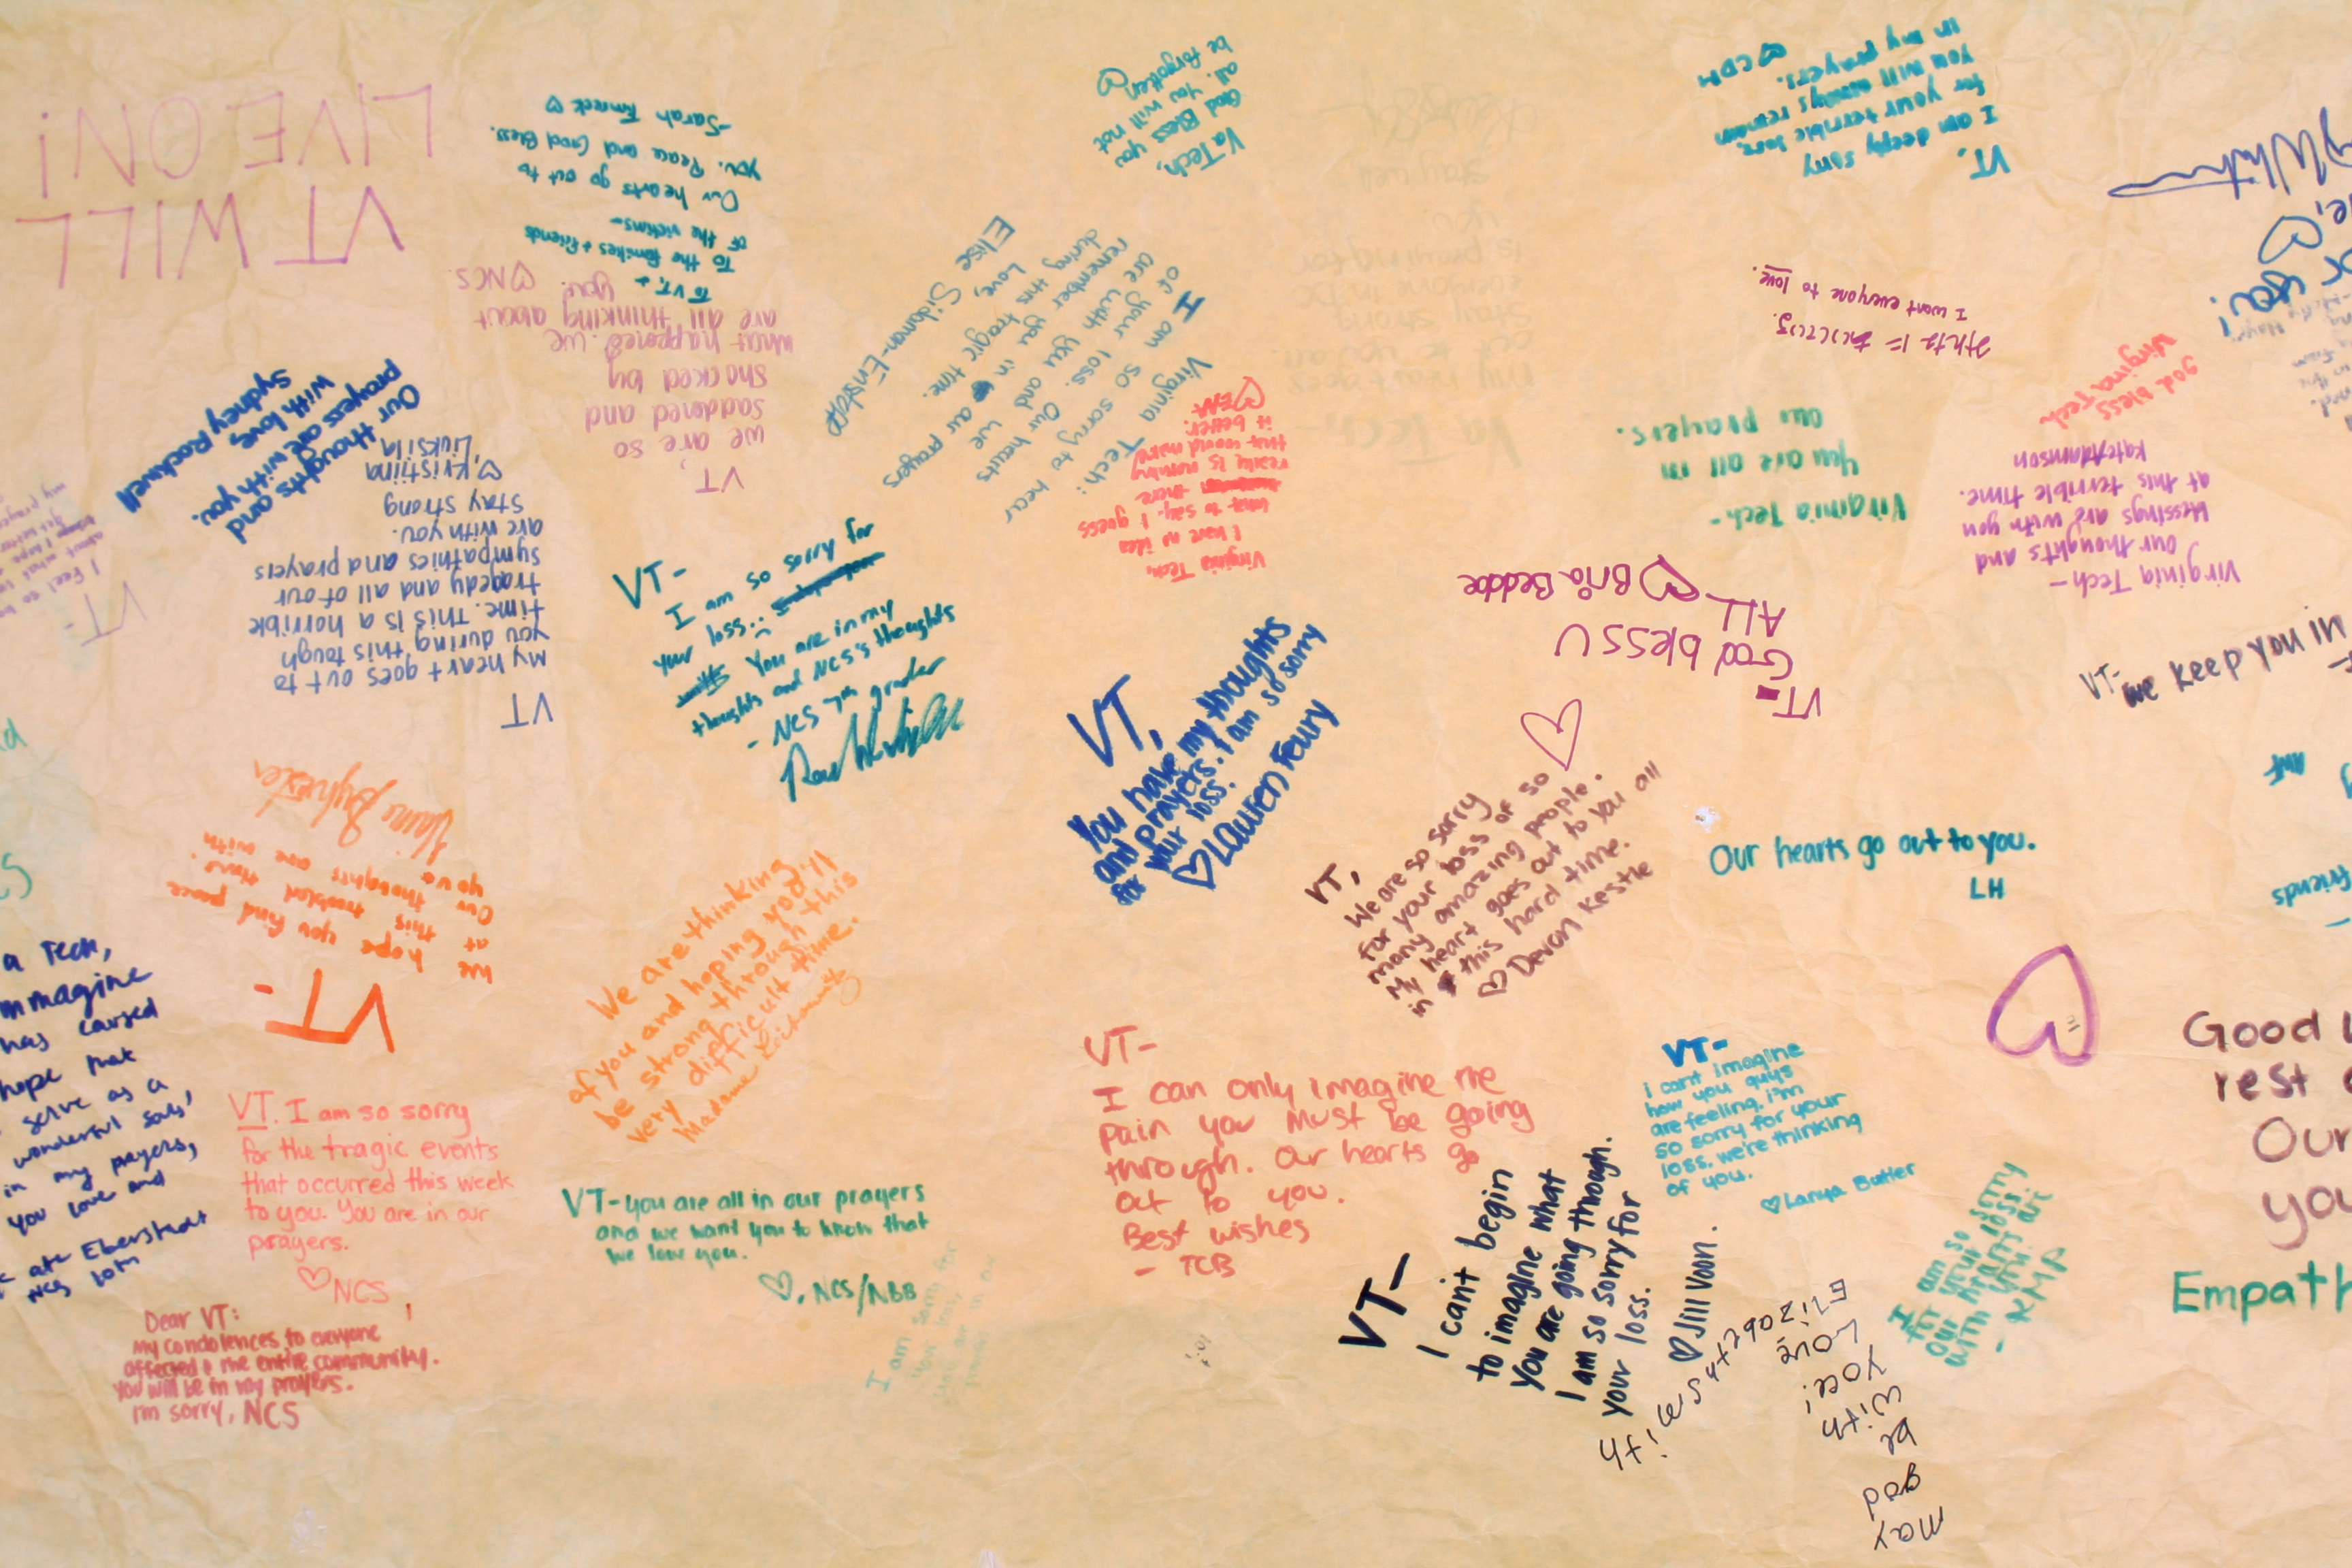 VT WILL
LIVE ON!
To VT, +
To the families + friends
of the victims-
Our hearts go out to
you. Peace and God Bless.
-Sarah
VT,
we are so
saddened and
shocked by
what happened. we
are all thinking about
you. ♡NCS.
Our thoughts and
prayers are with you.
with love,
Sydney Rockwell
VT
My heart goes out to
you during this tough
time. This is a horrible
tragedy and all of our
sympathies and prayers
are with you.
stay strong
♡Kristiina
Liuksila
Va Tech,
God Bless you
all. You will not
be forgotten
♡
Virginia Tech:
I am so sorry to hear
of your loss. Our hearts
are with you and we
remember you in our prayers
during this tragic time.
Love,
Elise Sidamon-Eristoff
Va Tech-
my heart goes
out to you all.
Stay strong
everyone in DC
is praying for
you.
Stay well
Virginia Tech,
I have no idea
what to say. I guess
there
really is nothing
that would make
it better.
♡
VT,
I am deeply sorry
for your terrible loss,
you will always remain
in my prayers.
♡CDM
I want everyone to love.
Virginia Tech-
You are all in
our prayers.
god bless
virginia Tech
Virginia Tech-
our thoughts and
blessings are with you
at this terrible time.
Kate Adamson
VT-
God bless U
ALL
♡Bria Beddoe
VT-
I am so sorry for
your loss.
You are in my
thoughts and NCS's thoughts
- NCS 7th grader
VT,
You have my thoughts
and prayers. I am so sorry
for your loss.
♡Lauren Feury
VT-we keep you in
VT,
We are so sorry
for your loss of so
many amazing people.
My heart goes out to you all
in this hard time.
♡Devon Kestle
Our hearts go out to you.
LH
friends
VT-
We hope you find peace
at this troubled time.
Our thoughts are with
you.
We are thinking
of you and hoping you'll
be strong through this
very difficult time.
Madame
a Tech,
mmagine
has caused
hope that
serve as a
wonderful souls,
in my prayers,
you love and
ate Eberstadt
NCS 10th
VT. I am so sorry
for the tragic events
that occurred this week
to you. You are in our
prayers.
♡NCS
Dear VT:
My condolences to everyone
affected & the entire community.
you will be in my prayers.
I'm sorry, NCS
VT-you are all in our prayers
and we want you to know that
we love you.
♡, NCS/NBB
I am sorry for
your loss,
VT-
I can only imagine the
pain you must be going
through. Our hearts go
out to you.
Best wishes
- TCB
VT-
i cant imagine
how you guys
are feeling. i'm
so sorry for your
loss. we're thinking
of you.
♡Lanya Butler
VT-
I can't begin
to imagine what
you are going though.
I am so sorry for
your loss.
♡Jill Voon.
I am so sorry
for your loss
our hearts are
with you.
- KMP
may
god
be
with
you!
Love
Elizabeth Smith
Good
rest
Our
you
Empath